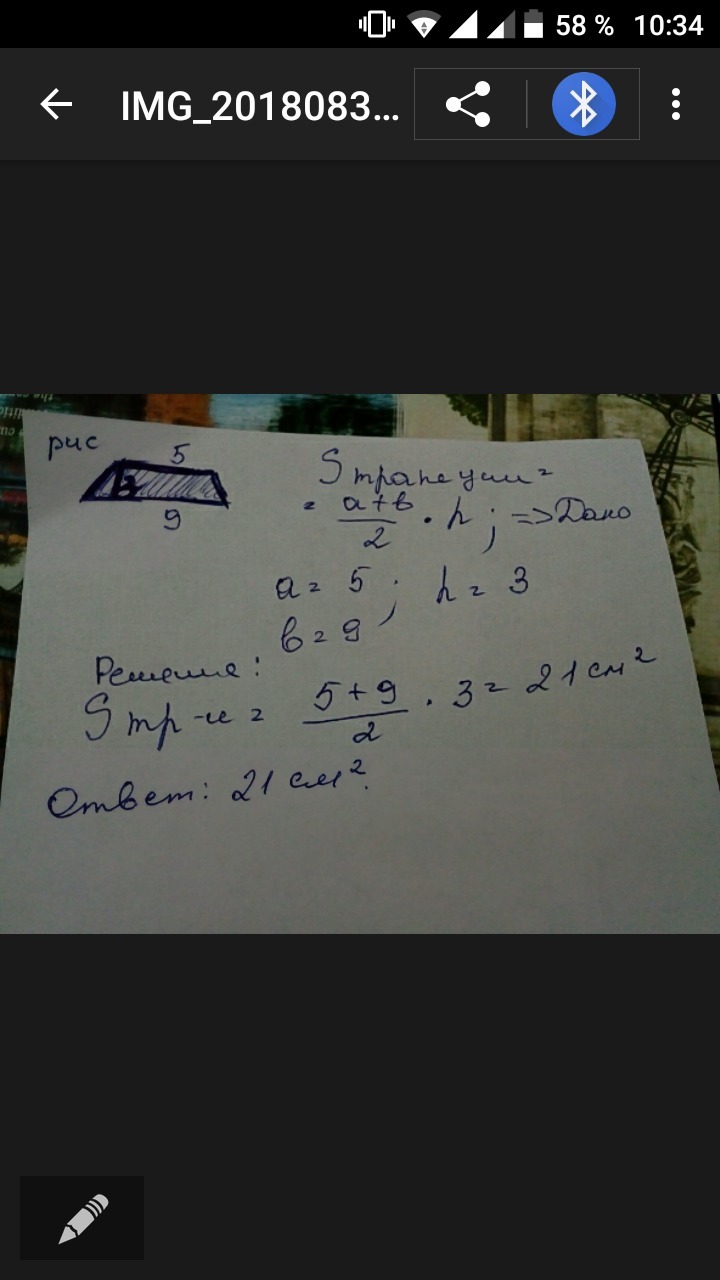 58 % 10:34
IMG_2018083...
рис
5
3
9
S трапеции =
= a+b/2 · h ; => Дано
a = 5 ; h = 3
b = 9
Решение:
S тр-и = 5+9/2 · 3 = 21 см²
Ответ: 21 см².